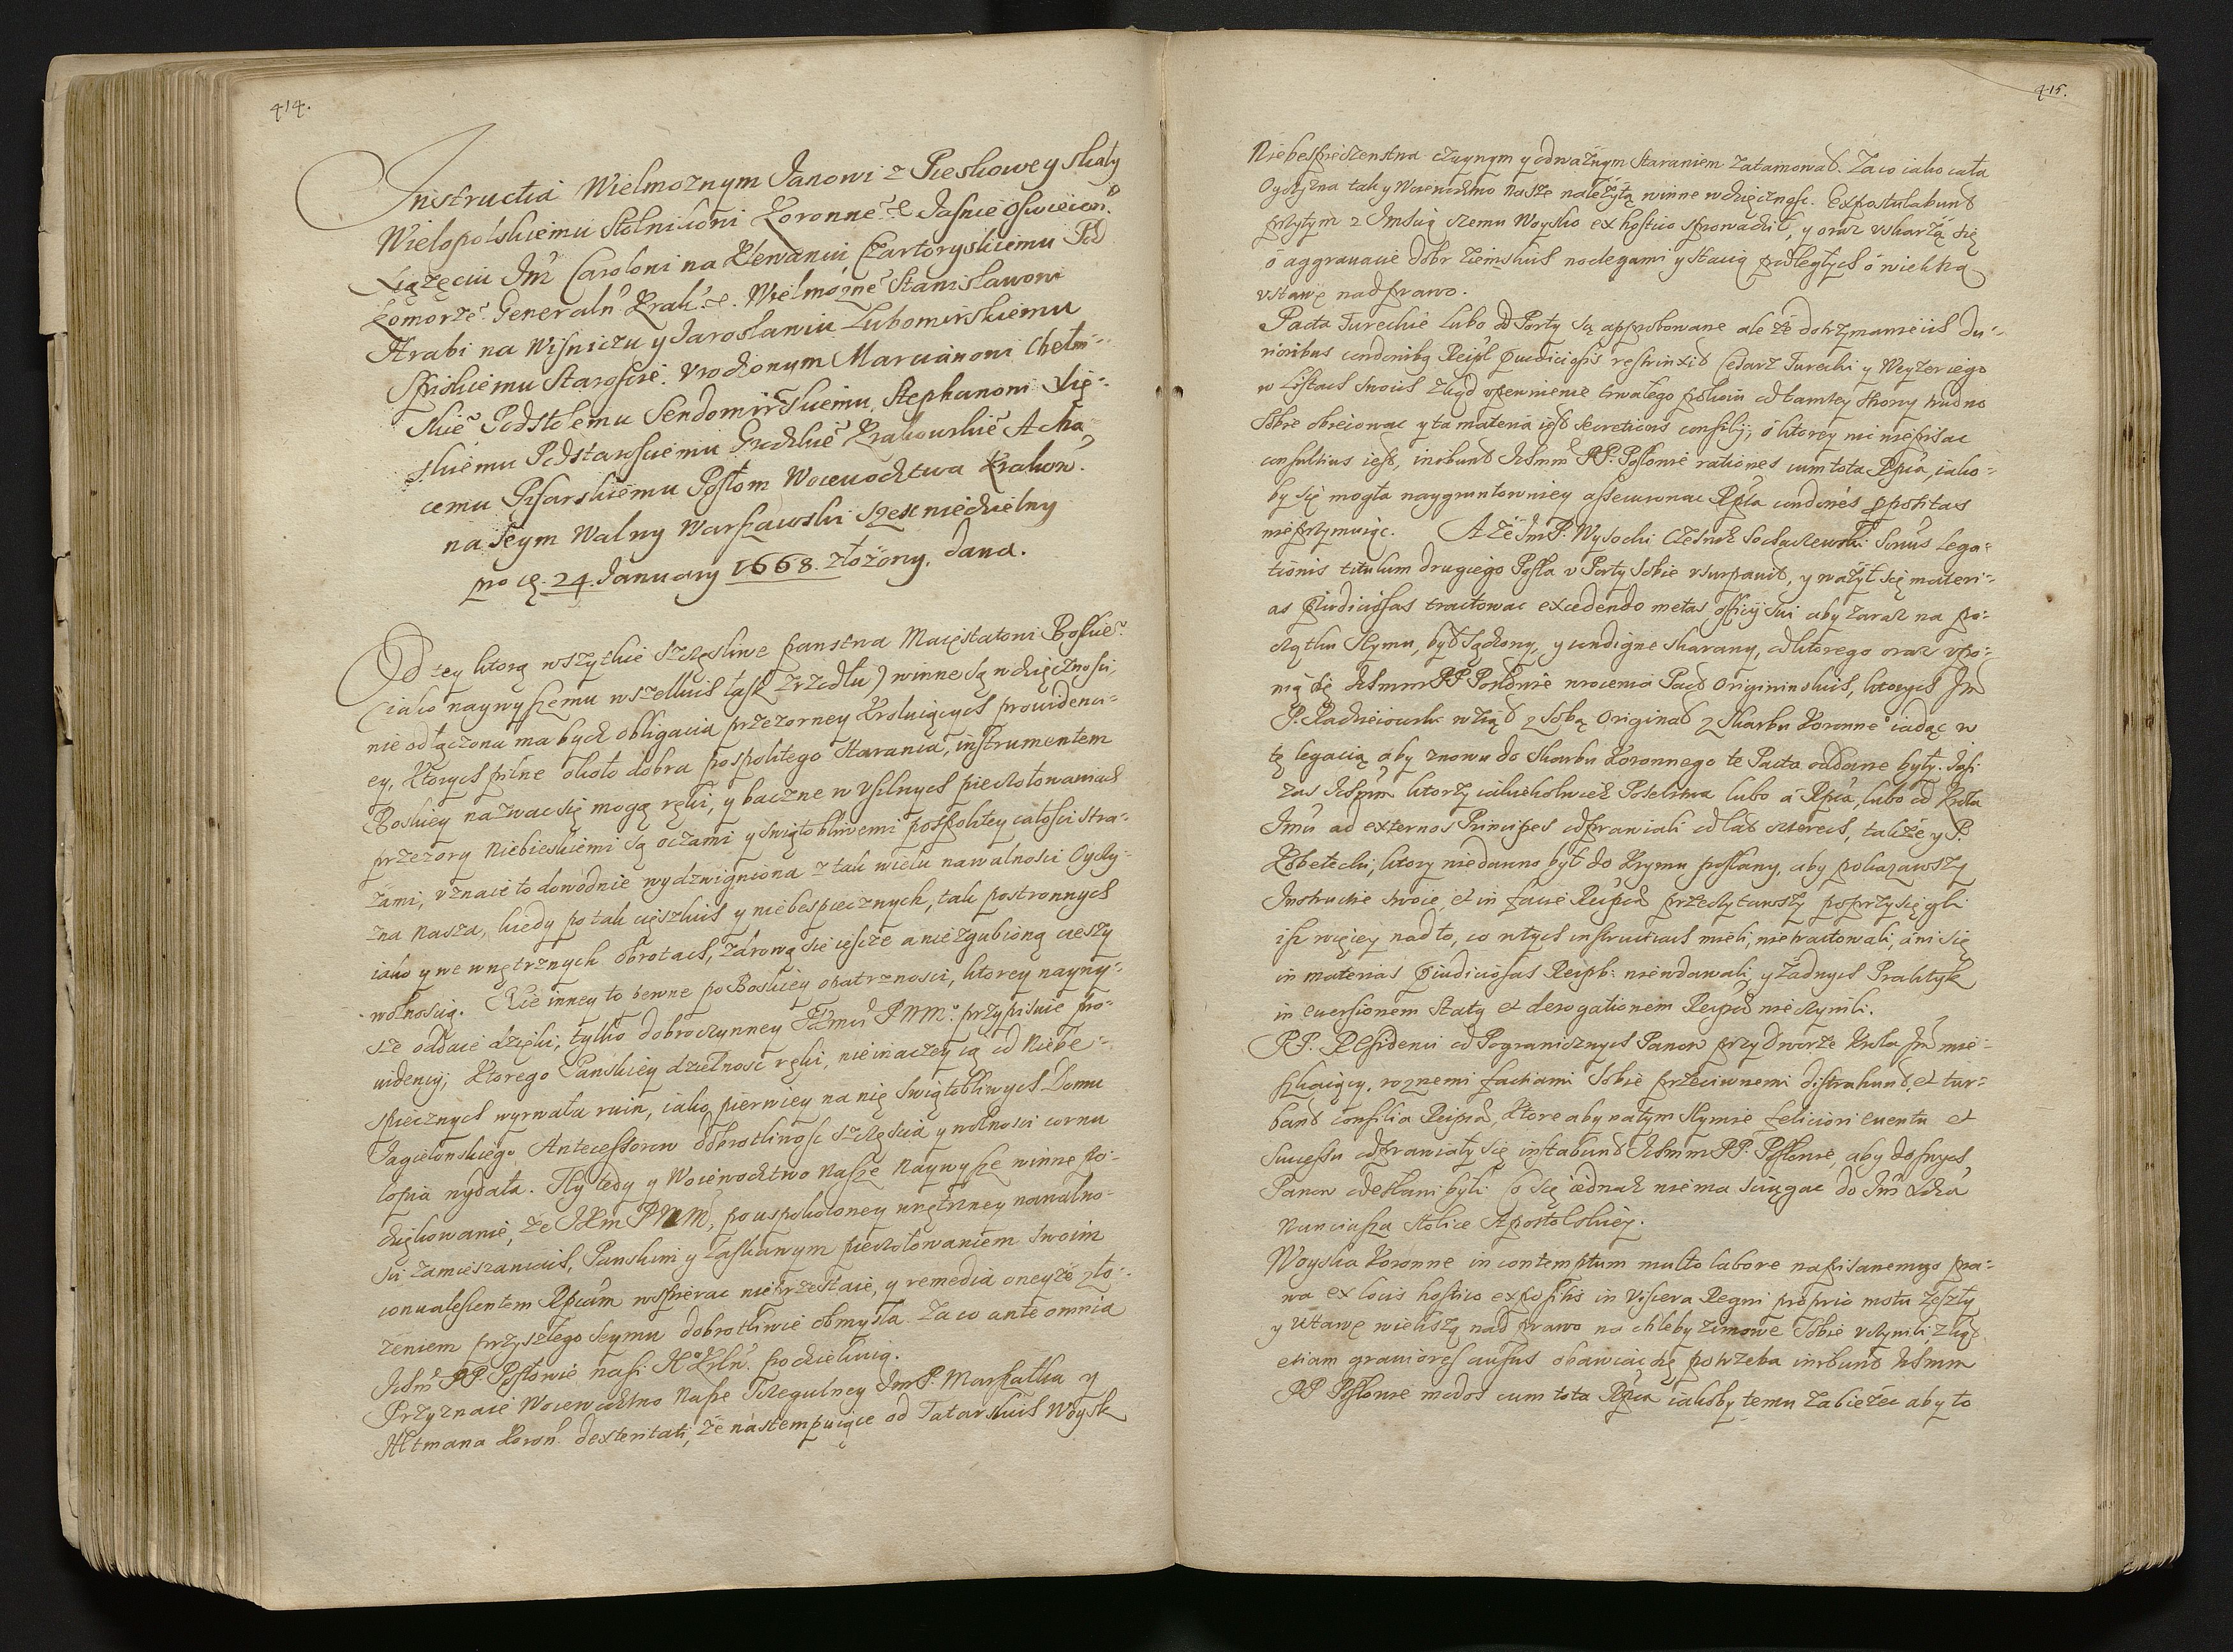 414.
Instructia Wielmoznym Janowi z Pieskowey skały
Wielopolskiemu Stolnikowi Koronne͠ e Jaśnie Oświecon̄.
Xiążęciu Jm̄ Carolowi na Klewaniu Czartoryskiemu Pod
komorze͠. Generaln̄ Krak̄. e. Wielmożne͠ Stanisławowi
Hrabi na Wiśniczu y Jarosławiu Lubomirskiemu
Spiskiemu Staroście. Vrodzonym Marcianowi Chełm-
skie͠ Podstolemu Sendomirskiemu, Stephanowi Lię-
skiemu Podstarościemu Grodzkie͠ Krakowskie͠ Acha-
cemu Pisarskiemu Posłom Woiewodztwa Krakow̄.
na Seym Walny Warszawski Szescniedzielny
pro d. 24. January 1668. złożony, dana.
Od tey ktorą wszytkie szczęśliwe panstwa Maiestatowi Boskie͠
(iako naywyszemu wszelkich łask zrzodłu) winne są wdzięcznosci,
nie odłączona ma bydz obligacia przezorney Kroluiących prowidenci-
ey, Ktorych pilne około dobra pospolitego starania, instrumentem
Boskiey nazwac się mogą ręki, y baczne w vsilnych pieczołowaniach
przezory Niebieskiemi są oczami y swiątobliwemi pospolitey całosci stra-
żami, vznaie to dowodnie wydzwigniona z tak wielu nawalnosci Oyczy-
zna Nasza, kiedy po tak cięszkich y niebespiecznych, tak postronnych
iako y wewnętrznych obrotach, zdrową się iescze a niezgubioną cieszy
wolnoscią. Nie inney to pewne po Boskiey opatrznosci, ktorey nayny-
sze oddaie dzięki, tylko dobroczynney JKmci PNM: przypisuie pro-
uidencij, Ktorego Panskiey dzielnosc ręki, nieinaczey ią od Niebe-
spiecznych wyrwała ruin, iako pierwiey na nię swiątobliwych Domu
Jagielonskiego Antecessorow dobrotliwosc szczęscia y wolnosci cornu
copia wydała. Tky tedy y Woiewodztwo Nasze Naywysze winne po-
dziękowanie, że JKm PNM, po uspokoioney wnętrzney nawalno-
sci zamieszaniach, Panskim y łaskawym pieczołowaniem swoim
conualescentem Rpcam wspierac nieprzestaie, y remedia oneyże zło-
żeniem przyszłego Seymu dobrotliwie obmysla. Za co ante omnia
Ichm̄ PP. Posłowie nasi Kᵒ Krln̄. podziekuią.
Przyznaie Woiewodztwo Nasze Szczegulney Jm P. Marszałka y
Hetmana Koron̄. dexteritati, że nastempuiące od Tatarskich Woysk
415.
Niebespieczenstwa czuynym y odważnym staraniem zatamował. Za co iako cała
Oyczyzna tak y Woiewodztwo nasze należytą winne wdzięcznosc. Expostulabunt
przytym z Jmscią czemu Woysko ex hostico sprowadził, y oraz vskarżą się
o aggrauacie dobr Ziemskich noclegami y stacią podległych o wielką
vstawę nad prawo.
Pacta Tureckie lubo od Porty są approbowane ale że dotrzymanie ich du-
rioribus condonibq Reipl Pręiudiciosis restrinxit Cesarz Turecki y Wezyr iego
w Listach swoich zkąd vpewnienie trwałego pokoiu od tamtey strony trudno
sobie obiecowac y ta materia iest secretioris consilij, o ktorey nic niepisac
consultius iest, inibunt Ichmm PP. Posłowie rationes cum tota Rpca, iako-
by się mogła naygruntowniey assecurowac Rpta condones Propositas
nieprzymuiąc. A że Jm P. Wysocki Czesnik Sochaczewski Socius Lega-
tionis titulum drugiego Posła v Porty sobie vsurpauit, y ważył się materi-
as Pręiudiciosas tractowac excedendo metas officij sui aby zaraz na po-
czątku Seymu, był sądzony, y condigne skarany, od ktorego oraz vpo-
nią się Ichmm PP Posłowie wrocenia Pact Origininskich, ktorych Jm
P. Radzieiowski wział z sobą Originał z Skarbu Koronneᵒ iadąc w
tę legacią aby znowu do Skarbu Koronnego te Pacta oddane były. Jesli
zas Ichmm ktorzy iakiekolwiek Poselstwa lubo a Rpca, lubo od Krola
Jmci ad externos Principes odprawiali od lat czterech, takze y P.
Kobełecki, ktory niedawno był do Krymu posłany, aby pokazawszy
Instructie swoie, et in facie Reipcæ przeczytawszy poprzysięgli
isz więcey nad to, co w tych instructiach mieli, nietractowali, ani się
in materias Pręiudiciosas Reipb: niewdawali, y żadnych Praktyk
in euersionem Statq et derogationem Reipcæ nie czynili.
PP. Residenci od Pogranicznych Panow przy dworze Krola Jm mie-
szkaiący, roznemi factiami sobie przeciwnemi distrahunt, et tur-
bant consilia Reipcæ, Ktore aby na tym Seymie feliciori euentu et
Sucessu odprawiały się instabunt Ichmm PP. Posłowie, aby do swych
Panow odesłani byli Co się iednak niema sciągac do Jm̄ Xdza
Nunciusza Stolice Apostolskiey.
Woyska Koronne in contemptum multo labore napisanemu pra-
wa ex locis hostico expositis in viscera Regni proprio motu zeszły
y vstawę wiekszą nad prawo na chleby zimowe sobie vczynili, zkąd
etiam grauiores ausus obawiac się potrzeba inibunt Ichmm
PP Posłowie modos cum tota Rpca iakoby temu zabieżec aby to